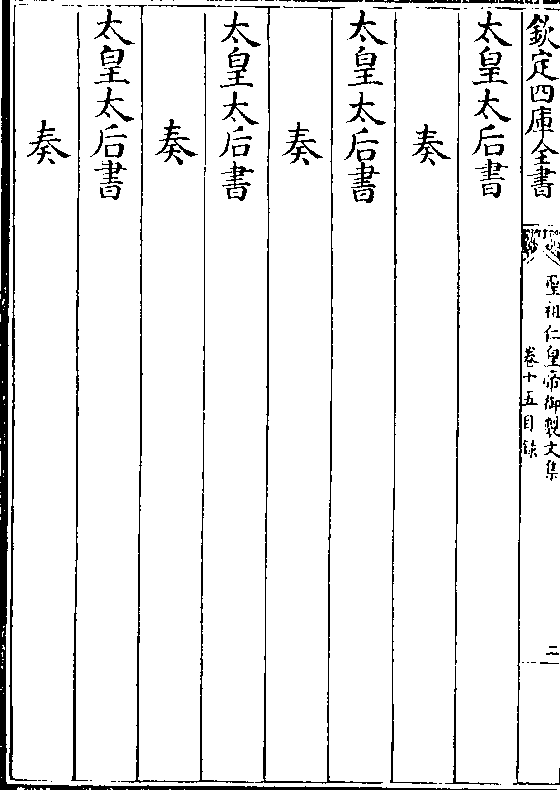 欽定四庫全書
聖祖仁皇帝御製文集
卷十五目錄
二
太皇太后書
奏
太皇太后書
奏
太皇太后書
奏
太皇太后書
奏